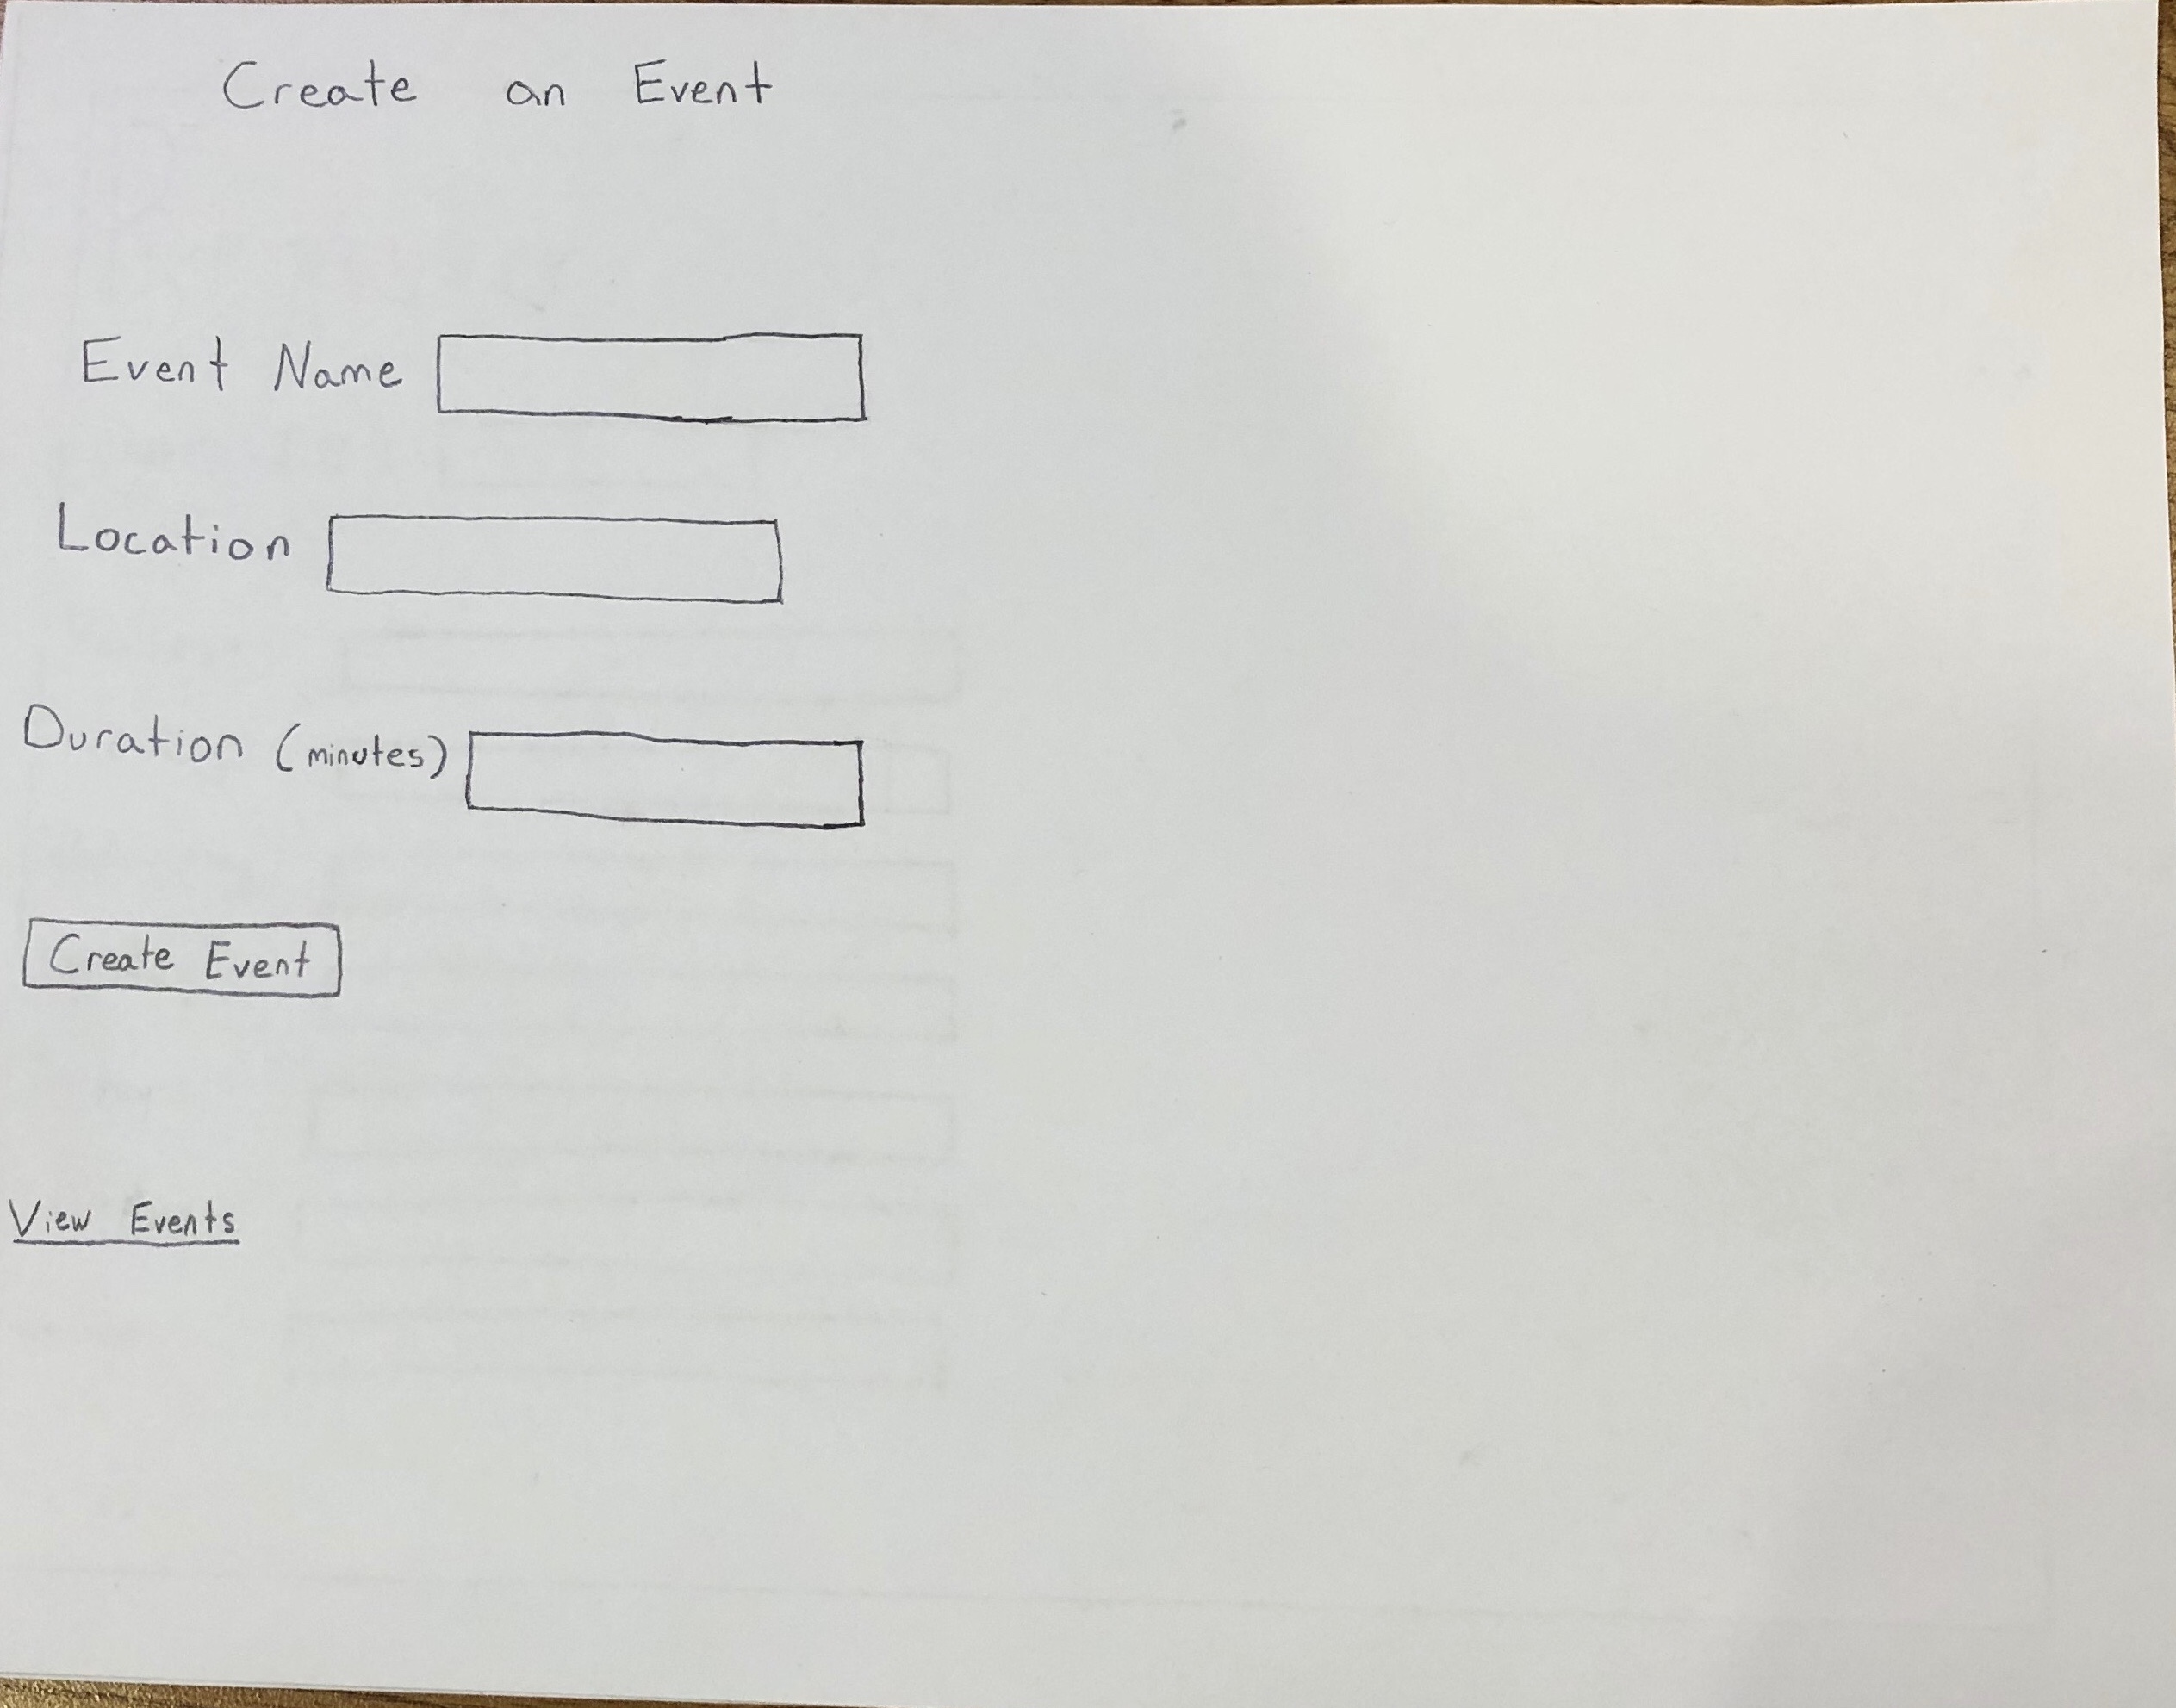 Create an Event
Event Name
Location
Duration (minutes)
Create Event
View Events